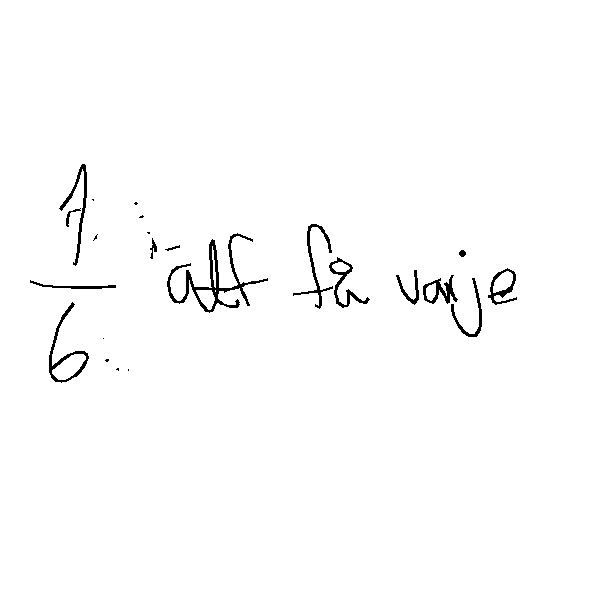 1/6 att få varje